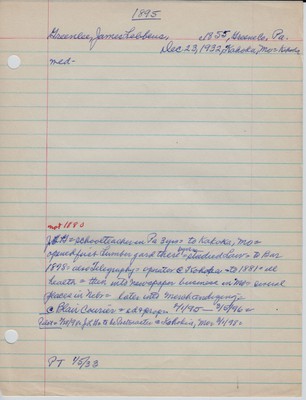 1895
Greenlee, James Lebbens, 1855, Greene Co. Pa.
Dec. 23, 1932, Kahoka, Mo.
med—
not 1880
school teacher in Pa 3 yrs = to Kahoka, Mo =
opened first lumber yard there = studied Law = to Bar
1895 = Telegraph operator @ Kahoka = to 1881 = ill
health = then into newspaper business in Neb = several
places in Nebr = later into merchandizing =
Blair Courier = ed & prop = 4/1/95 — 2/6/96 =
to be Postmaster @ Kahoka, Mo 4/98 =
PT 4/5/33